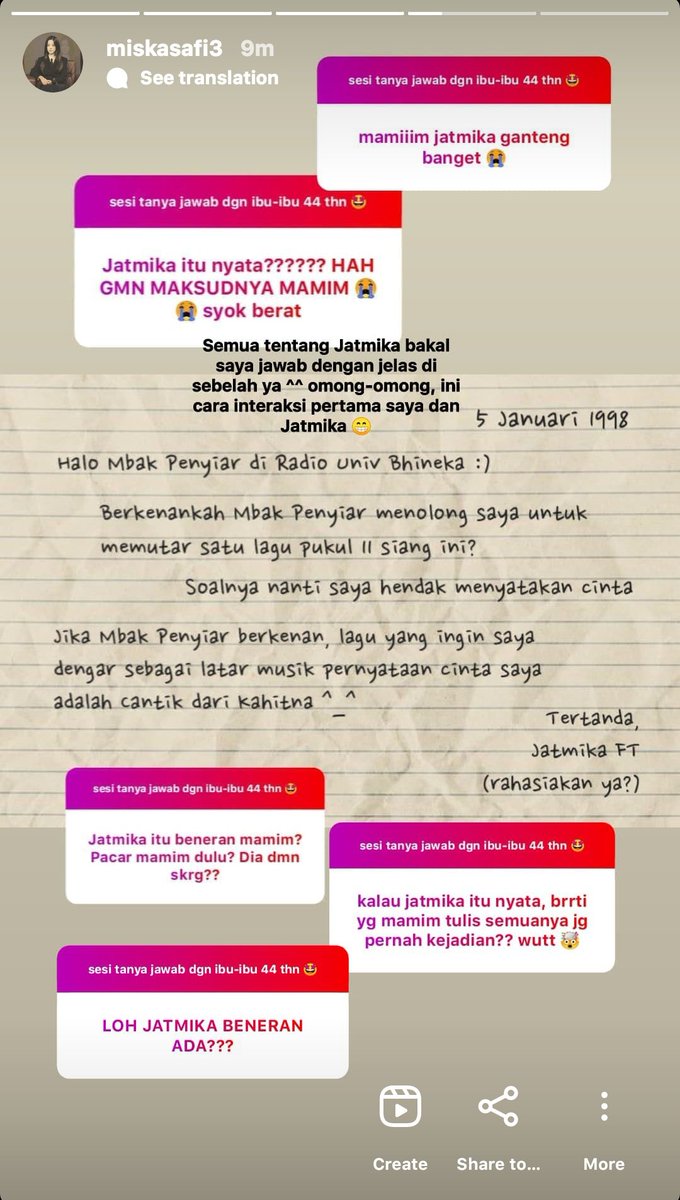 miskasafi3 9m
See translation
sesi tanya jawab dgn ibu-ibu 44 thn 🤩
mamiiim jatmika ganteng
banget 😭
sesi tanya jawab dgn ibu-ibu 44 thn 🤩
Jatmika itu nyata?????? HAH
GMN MAKSUDNYA MAMIM 😭
😭 syok berat
Semua tentang Jatmika bakal
saya jawab dengan jelas di
sebelah ya ^^ omong-omong, ini
cara interaksi pertama saya dan
Jatmika 😁
5 Januari 1998
Halo Mbak Penyiar di Radio Univ Bhineka :)
Berkenankah Mbak Penyiar menolong saya untuk
memutar satu lagu pukul 11 siang ini?
Soalnya nanti saya hendak menyatakan cinta
Jika Mbak Penyiar berkenan, lagu yang ingin saya
dengar sebagai latar musik pernyataan cinta saya
adalah cantik dari kahitna ^_^
Tertanda,
Jatmika FT
(rahasiakan ya?)
sesi tanya jawab dgn ibu-ibu 44 thn 🤩
Jatmika itu beneran mamim?
Pacar mamim dulu? Dia dmn
skrg??
sesi tanya jawab dgn ibu-ibu 44 thn 🤩
kalau jatmika itu nyata, brrti
yg mamim tulis semuanya jg
pernah kejadian?? wutt 🤯
sesi tanya jawab dgn ibu-ibu 44 thn 🤩
LOH JATMIKA BENERAN
ADA???
Create
Share to...
More